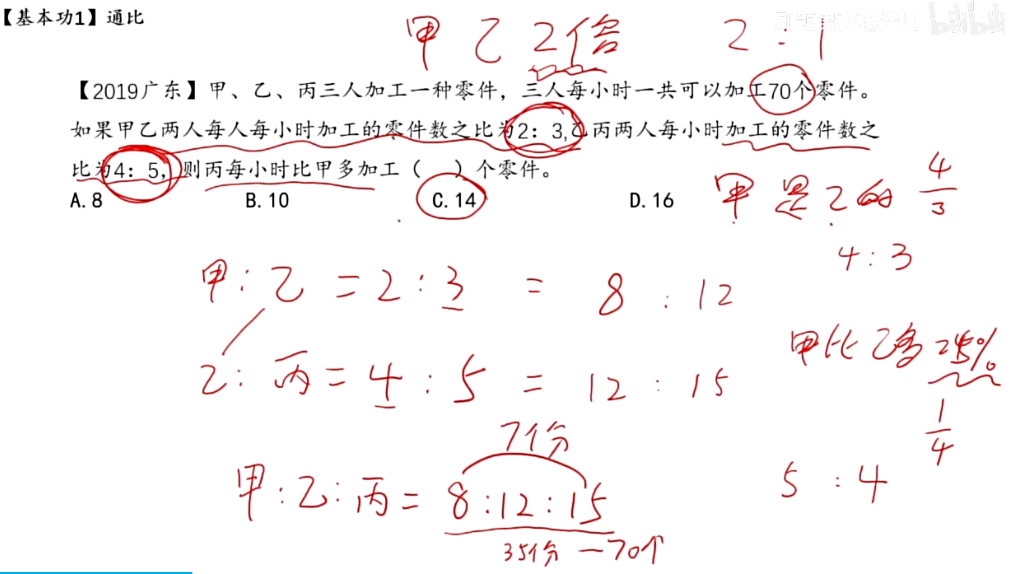 【基本功1】通比
甲 乙 2倍 2:1
bilibili
【2019广东】甲、乙、丙三人加工一种零件，三人每小时一共可以加工70个零件。
如果甲乙两人每人每小时加工的零件数之比为2：3,乙丙两人每小时加工的零件数之
比为4：5，则丙每小时比甲多加工（ ）个零件。
A.8 B.10 C.14 D.16
甲是乙的 4/3
4:3
甲:乙=2:3 = 8:12
甲比乙多25%
乙:丙=4:5 = 12:15
1/4
7个分
5:4
甲:乙:丙=8:12:15
35个分—70个